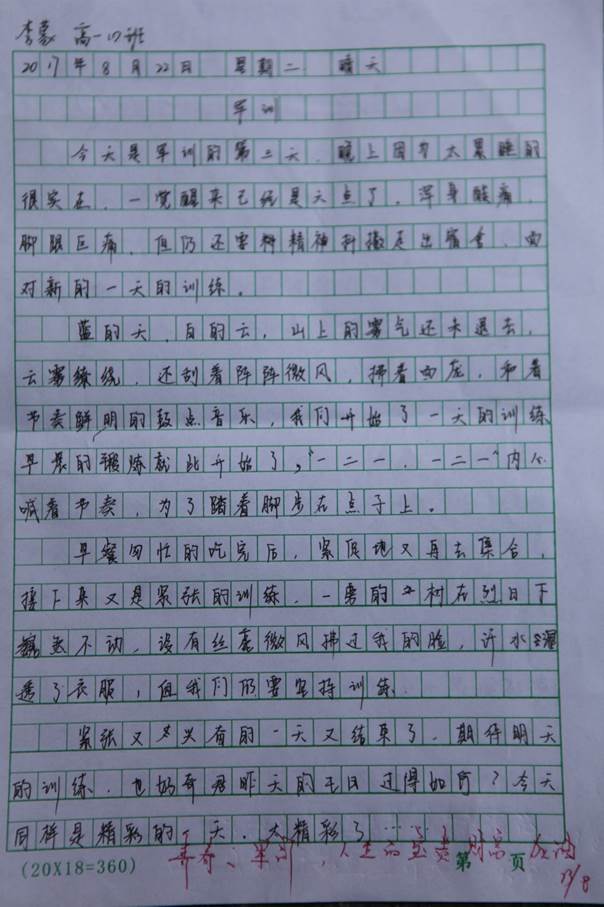 李蒙 高一17班
2017年8月22日 星期二 晴天
军训
今天是军训的第三天，晚上因为太累睡的
很实在，一觉醒来已经是六点了，浑身酸痛，
脚跟巨痛，但仍还要精神抖擞走出宿舍，面
对新的一天的训练。
蓝的天，白的云，山上的雾气还未退去，
云雾缭绕，还刮着阵阵微风，拂着面庞，和着
节奏鲜明的鼓点音乐，我们开始了一天的训练
早晨的锻炼就此开始了，“一二一，一二一”内心
喊着节奏，为了踏着脚步在点子上。
早餐匆忙的吃完后，紧促地又再去集合，
接下来又是紧张的训练，一旁的树在烈日下
不动，没有丝毫微风拂过我的脸，汗水湿
透了衣服，但我们仍要坚持训练
紧张又兴奋的一天又结束了，期待明天
的训练，也好奇昨天的过得如何？今天
同样是精彩的一天，太精彩了……
(20X18=360) 第 页
青春、军训，人生的宝贵财富